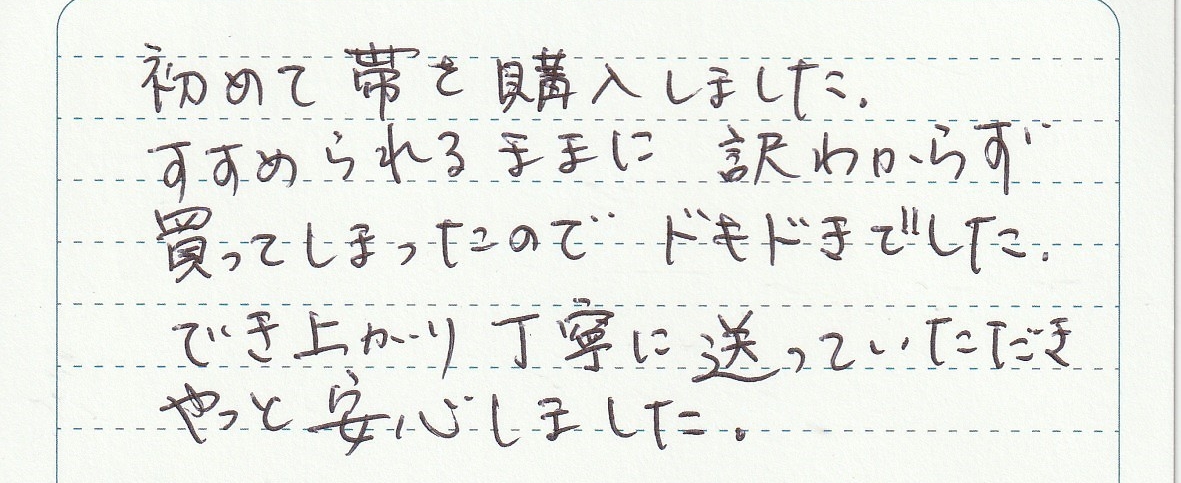 初めて帯を購入しました.
すすめられるままに 訳わからず
買ってしまったので ドキドキでした.
でき上がり 丁寧に送っていただき
やっと安心しました.